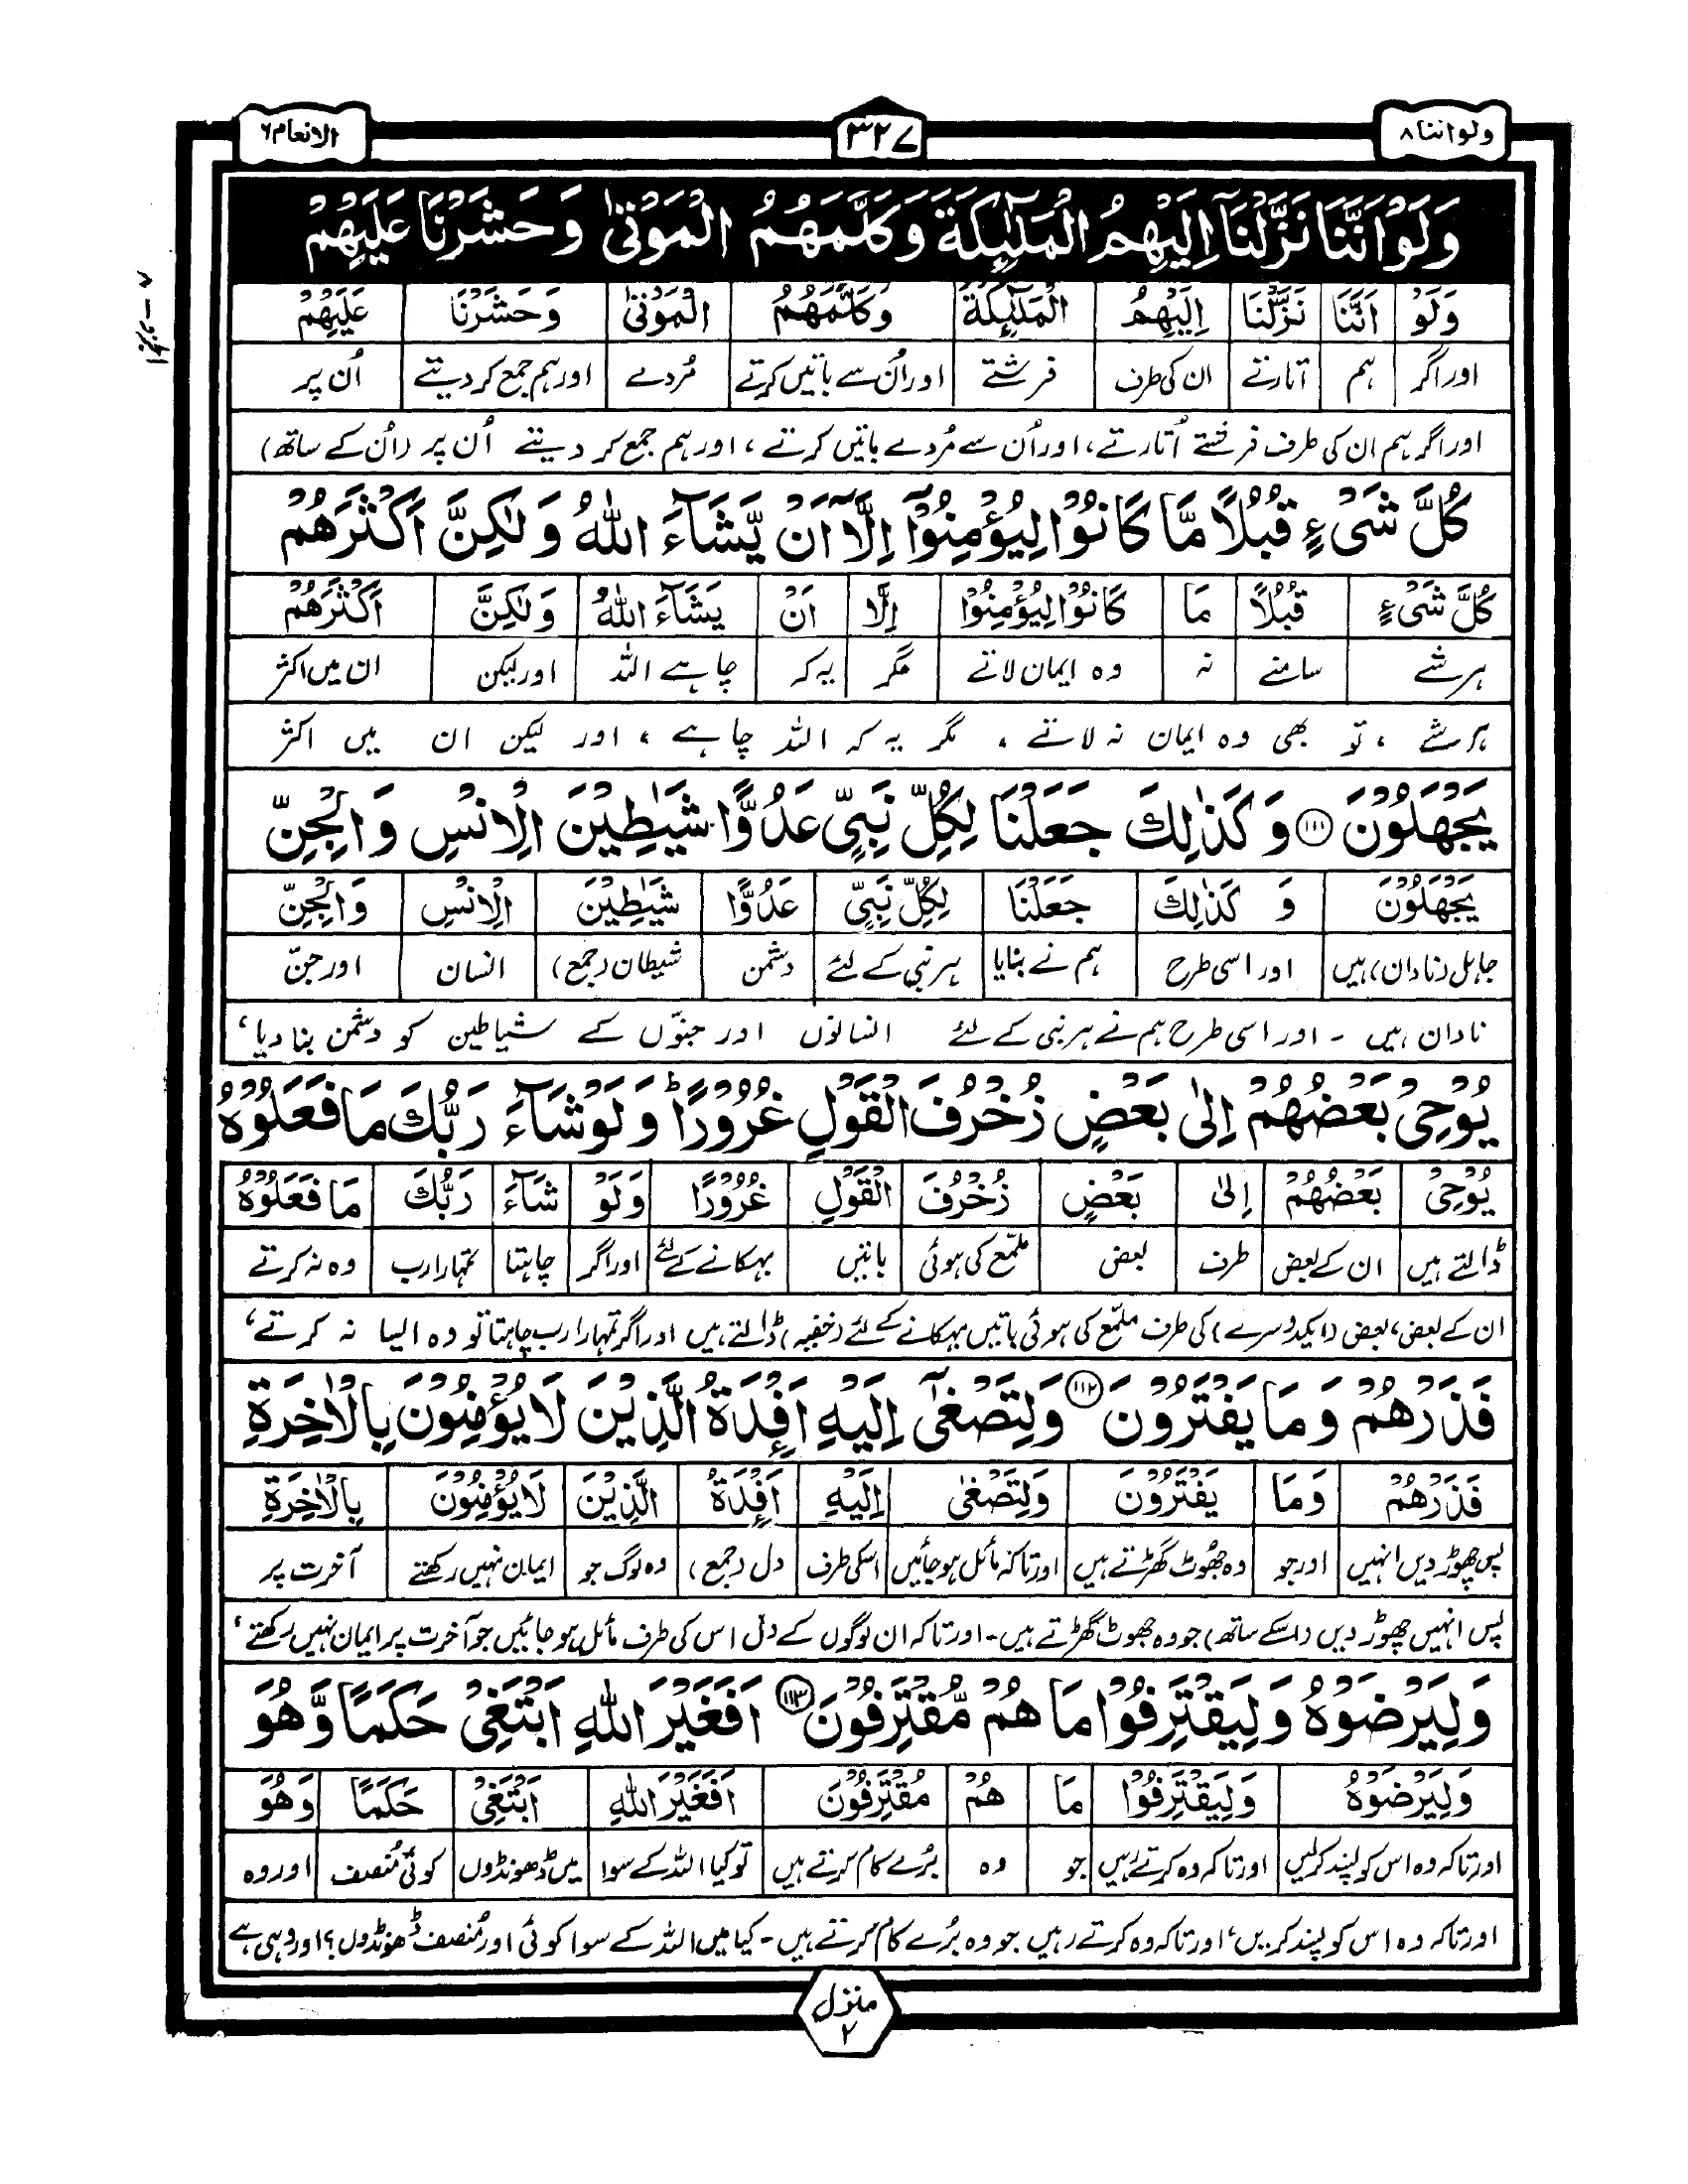 ولواننا ۸
۳۲۷
الانعام ۶
الجزء ۸
وَلَوْ اَنَّنَا نَزَّلْنَاۤ اِلَیْهِمُ الْمَلٰٓىِٕكَةَ وَكَلَّمَهُمُ الْمَوْتٰی وَحَشَرْنَا عَلَیْهِمْ
وَلَوْ اَنَّنَا نَزَّلْنَا اِلَیْهِمُ الْمَلٰٓىِٕكَةَ وَكَلَّمَهُمُ الْمَوْتٰی وَحَشَرْنَا عَلَیْهِمْ
اور اگر ہم اتارتے ان کی طرف فرشتے اور اُن سے باتیں کرتے مُردے اور ہم جمع کر دیتے اُن پر
اور اگر ہم ان کی طرف فرشتے اُتارتے، اور اُن سے مُردے باتیں کرتے، اور ہم جمع کر دیتے اُن پر (اُن کے ساتھ)
كُلَّ شَیْءٍ قُبُلًا مَّا كَانُوْا لِیُؤْمِنُوْۤا اِلَّاۤ اَنْ یَّشَآءَ اللّٰهُ وَلٰكِنَّ اَكْثَرَهُمْ
كُلَّ شَیْءٍ قُبُلًا مَا كَانُوْا لِیُؤْمِنُوْا اِلَّا اَنْ یَشَآءَ اللّٰهُ وَلٰكِنَّ اَكْثَرَهُمْ
ہر شے سامنے نہ وہ ایمان لاتے مگر یہ کہ چاہے اللہ اور لیکن ان میں اکثر
ہر شے، تو بھی وہ ایمان نہ لاتے، مگر یہ کہ اللہ چاہے، اور لیکن ان میں اکثر
یَجْهَلُوْنَ ۝۱۱۱ وَكَذٰلِكَ جَعَلْنَا لِكُلِّ نَبِیٍّ عَدُوًّا شَیٰطِیْنَ الْاِنْسِ وَالْجِنِّ
یَجْهَلُوْنَ وَ كَذٰلِكَ جَعَلْنَا لِكُلِّ نَبِیٍّ عَدُوًّا شَیٰطِیْنَ الْاِنْسِ وَالْجِنِّ
جاہل (نادان) ہیں اور اسی طرح ہم نے بنایا ہر نبی کے لئے دشمن شیطان (جمع) انسان اور جنّ
نادان ہیں ۔ اور اسی طرح ہم نے ہر نبی کے لئے انسانوں اور جنّوں کے شیاطین کو دشمن بنا دیا،
یُوْحِیْ بَعْضُهُمْ اِلٰی بَعْضٍ زُخْرُفَ الْقَوْلِ غُرُوْرًا ؕ وَلَوْ شَآءَ رَبُّكَ مَا فَعَلُوْهُ
یُوْحِیْ بَعْضُهُمْ اِلٰی بَعْضٍ زُخْرُفَ الْقَوْلِ غُرُوْرًا وَلَوْ شَآءَ رَبُّكَ مَا فَعَلُوْهُ
ڈالتے ہیں ان کے بعض طرف بعض ملمّع کی ہوئی باتیں بہکانے کے لئے اور اگر چاہتا تمہارا رب وہ نہ کرتے
ان کے بعض، بعض (ایک دوسرے) کی طرف ملمّع کی ہوئی باتیں بہکانے کے لئے (خفیہ) ڈالتے ہیں اور اگر تمہارا رب چاہتا تو وہ ایسا نہ کرتے،
فَذَرْهُمْ وَمَا یَفْتَرُوْنَ ۝۱۱۲ وَلِتَصْغٰۤی اِلَیْهِ اَفْـِٕدَةُ الَّذِیْنَ لَا یُؤْمِنُوْنَ بِالْاٰخِرَةِ
فَذَرْهُمْ وَمَا یَفْتَرُوْنَ وَلِتَصْغٰی اِلَیْهِ اَفْـِٕدَةُ الَّذِیْنَ لَا یُؤْمِنُوْنَ بِالْاٰخِرَةِ
پس چھوڑ دیں انہیں اور جو وہ جھُوٹ گھڑتے ہیں اور تاکہ مائل ہو جائیں اسکی طرف دل (جمع) وہ لوگ جو ایمان نہیں رکھتے آخرت پر
پس انہیں چھوڑ دیں (اسکے ساتھ) جو وہ جھوٹ گھڑتے ہیں۔ اور تاکہ ان لوگوں کے دل اس کی طرف مائل ہو جائیں جو آخرت پر ایمان نہیں رکھتے،
وَلِیَرْضَوْهُ وَلِیَقْتَرِفُوْا مَا هُمْ مُّقْتَرِفُوْنَ ۝۱۱۳ اَفَغَیْرَ اللّٰهِ اَبْتَغِیْ حَكَمًا وَّهُوَ
وَلِیَرْضَوْهُ وَلِیَقْتَرِفُوْا مَا هُمْ مُقْتَرِفُوْنَ اَفَغَیْرَ اللّٰهِ اَبْتَغِیْ حَكَمًا وَهُوَ
اور تاکہ وہ اس کو پسند کرلیں اور تاکہ وہ کرتے رہیں جو وہ بُرے کام کرتے ہیں تو کیا اللہ کے سوا میں ڈھونڈوں کوئی مُنصف اور وہ
اور تاکہ وہ اس کو پسند کریں، اور تاکہ وہ کرتے رہیں جو وہ بُرے کام کرتے ہیں۔ کیا میں اللہ کے سوا کوئی اور مُنصف ڈھونڈوں؟ اور وہی ہے
منزل
۲